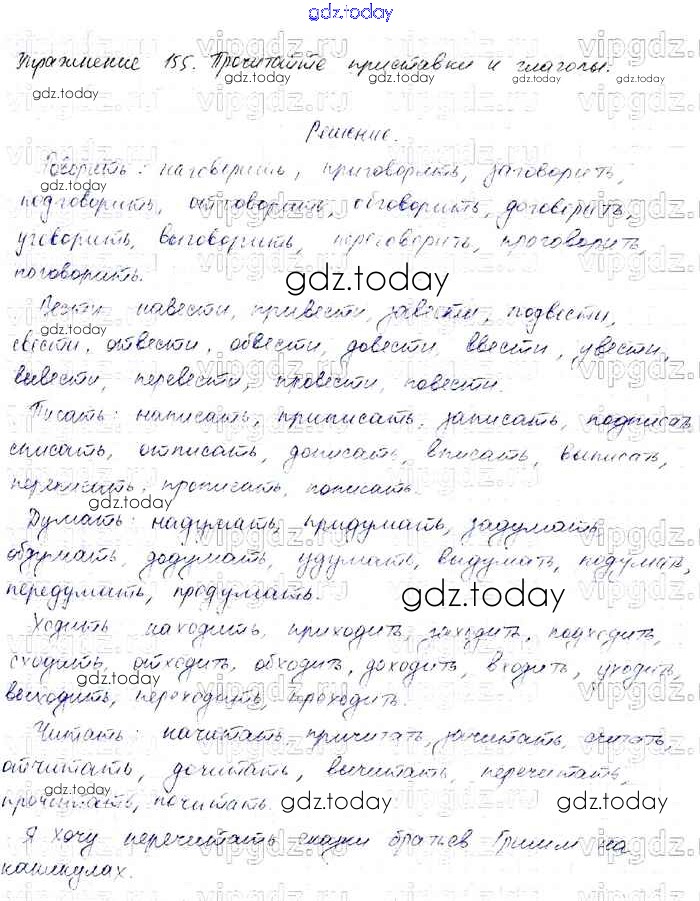 gdz.today
Упражнение 155. Прочитайте приставки и глаголы:
gdz.today gdz.today gdz.today
Решение.
Говорить: наговорить, приговорять, заговорить,
gdz.today
подговорить, отговорить, обговорить, договорить,
gdz.today gdz.today
уговорить, выговорить, переговорить, проговорить,
поговорить.
gdz.today
Вести навести, привести, завести, подвести,
свести, отвести, обвести, довести, ввести, увести,
вывести, перевести, провести, повести.
gdz.today
Писать: написать, приписать, записать, подписать
списать, отписать, дописать, вписать, выписать,
gdz.today gdz.today
переписать, прописать, пописать.
gdz.today
Думать: надумать, придумать, задумать
обдумать, додумать, удумать, выдумать, подумать,
передумать, продумать.
gdz.today
Ходить находить, приходить, заходить, подходить,
сходить, отходить, обходить, доходить, входить, уходить,
gdz.today gdz.today
выходить, переходить, проходить.
Читать: начитать, причитать, зачитать, считать,
gdz.today
отчитать, дочитать, вычитать, перечитать,
прочитать, почитать.
gdz.today gdz.today
Я хочу перечитать сказки братьев Гримм на
gdz.today
каникулах.